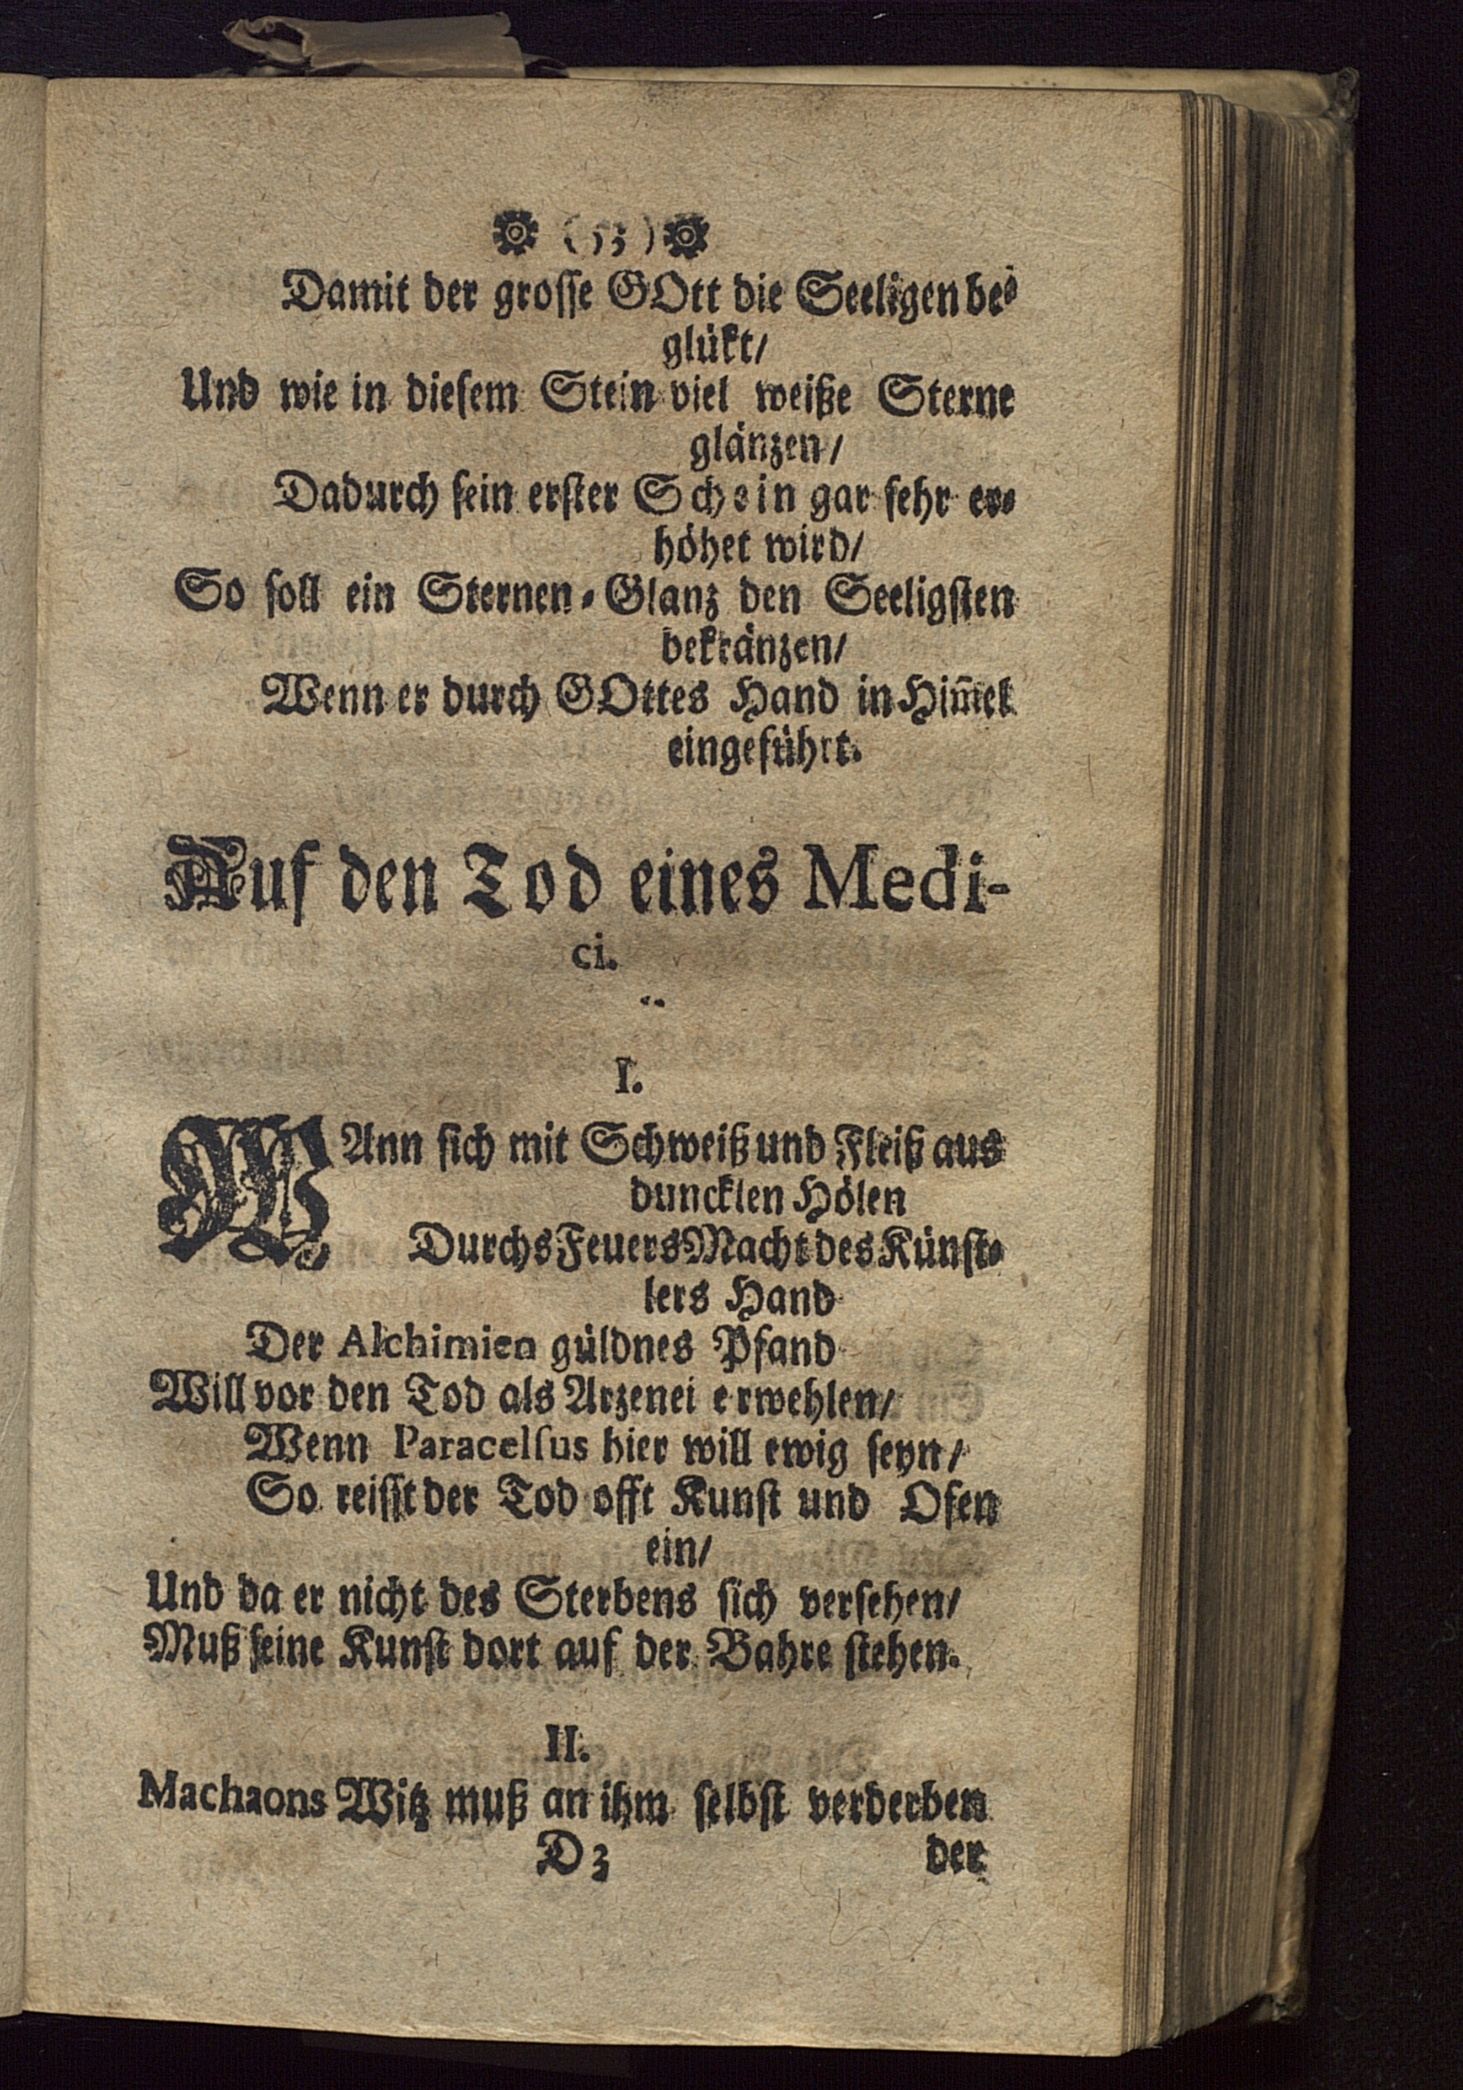 (53)
Damit der grosse GOtt die Seeligen be-
glükt/
Und wie in diesem Stein viel weiße Sterne
glänzen/
Dadurch sein erster Schein gar sehr er-
höhet wird/
So soll ein Sternen-Glanz den Seeligsten
bekränzen/
Wenn er durch GOttes Hand in Him̃el
eingeführt.
Auf den Tod eines Medi-
ci.
I.
WAnn sich mit Schweiß und Fleiß aus
duncklen Hölen
Durchs Feuers Macht des Künst-
lers Hand
Der Alchimien güldnes Pfand
Will vor den Tod als Arzenei erwehlen/
Wenn Paracelsus hier will ewig seyn/
So reisst der Tod offt Kunst und Ofen
ein/
Und da er nicht des Sterbens sich versehen/
Muß seine Kunst dort auf der Bahre stehen.
II.
Machaons Witz muß an ihm selbst verderben
D 3 der